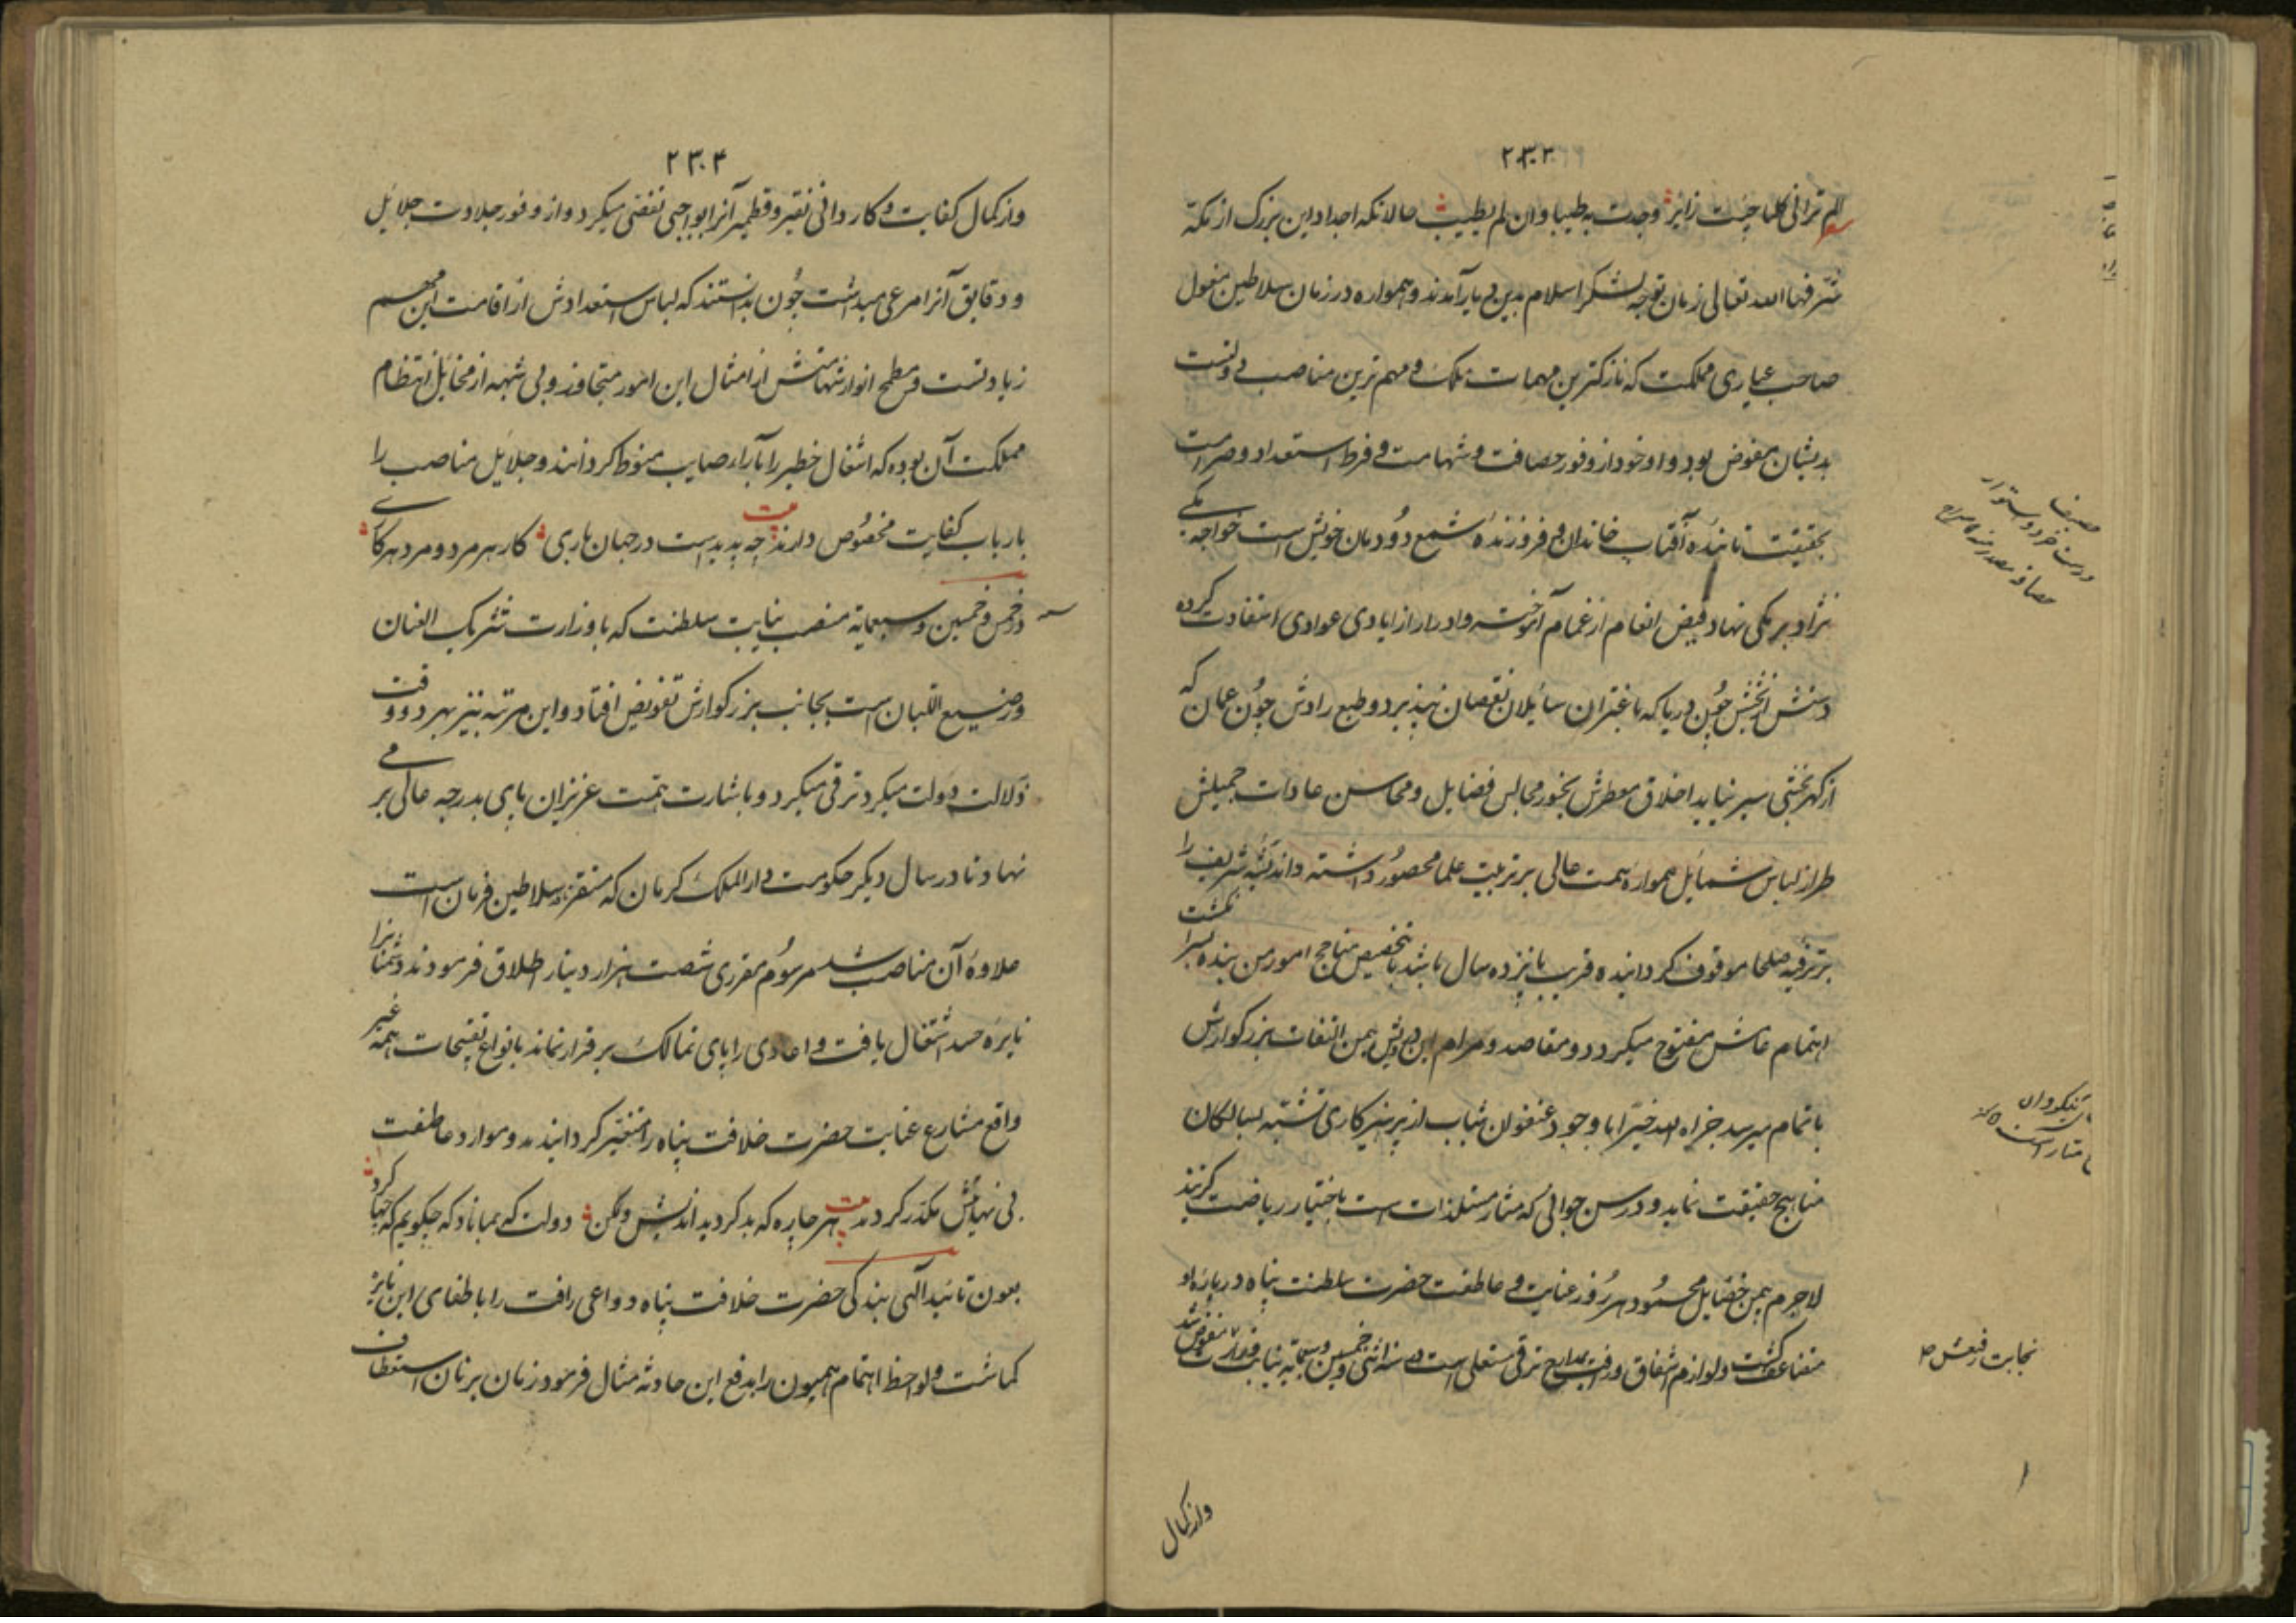 ۲۳۳
الم ترانی کلما جئت زایرا وجدت به طیبا وان لم یطیب حالانکه اجداد این بزرگ از مکه
شرفها الله تعالی زمان توجه لشکر اسلام بدین دیار آمدند و همواره در زمان سلاطین مغول
صاحب عیاری مملکت که نازکترین مهمات ملک و مهم ترین مناصب دولتست
بدیشان مفوض بود و او خود از وفور حصافت و شهامت و فرط استعداد و صرامت
بحقیقت تابنده آفتاب خاندان و فروزنده شمع دودمان خویش است خواجه مکی
نژاد برمکی نهاد فیض انعام از غمام آموخته و ادرار از ایادی عوادی استفادت کرده
دستش از بخشش چون دریا که باغتراف سایلان نقصان نپذیرد و طبع رادش چون عمان که
از گهربخشی سیر نیاید اخلاق معطرش بخور مجالس فضایل و محاسن عادات جمیلش
طراز لباس شمایل همواره همت عالی بر تربیت علما محصور داشته و اندیشه شریف را
بر ترفیه صلحا موقوف گردانیده قریب پانزده سال باشد بتخصیص مناجح امور من بنده بسرانگشت
اهتمام عاش مفتوح میگردد و مقاصد و مرام این درویش بیمن التفات بزرگوارش
باتمام میرسد جزاه الله خیرا با وجود عنفوان شباب از پرهیزکاری تشبه بسالکان
مناهج حقیقت نماید و در سن جوانی که مثار مستلذات است باختیار ریاضت گزیند
لاجرم بیمن خصایل محسود هر روز عنایت و عاطفت حضرت سلطنت پناه درباره او
متضاعف گشت و لوازم اشفاق و رافت بمدارج ترقی مستعلی است در سنه اثنی و خمسین و سبعمایه نیابت مفوض شد
نجابت رفیعش
واز کمال
۲۳۴
واز کمال کفایت و کاردانی نقیر و قطمیر آنرا بواجبی تفصی میکرد و از وفور جلادت جلایل
و دقایق آنرا مرعی میداشت چون بدانستند که لباس استعدادش از اقامت این مهم
زیادتست و مطمح انوار شهامتش از امثال این امور متجاوز و بی شبهه از مخایل انتظام
مملکت آن بوده که اشغال خطیر را بآراء صایب منوط گردانند و جلایل مناصب را
بارباب کفایت مخصوص دارند چه پدیدست در جهان باری کار هر مرد و مرد هر کاری
در خمس و خمسین و سبعمایة منصب نیابت سلطنت که با وزارت شریک العنان
و رضیع اللبان است بجانب بزرگوارش تفویض افتاد و این مرتبه نیز بهر دو وقت
دلالت دولت میکرد ترقی میکرد و باشارت همت عزیزان پای بدرجه عالی بر می
نهاد تا در سال دیگر حکومت دار الملک کرمان که مستقر سلاطین فرمان است
علاوه آن مناصب شد مرسوم مقرری شصت هزار دینار اطلاق فرمودند دشمنانرا
نایره حسد اشتعال یافت و اعادی را پای تمالک برقرار نماند بانواع تقبیحات همه غیر
واقع مشارع عنایت حضرت خلافت پناه را متغیر گردانیدند و موارد عاطفت
بی نهایتش مکدر کردند هر چاره که بد کرد بداندیش ولیکن دولت که بماناد که چگویم که چها کرد
بعون تائید الهی بندگی حضرت خلافت پناه دواعی رافت را باطفای این نایره
گماشت و لواحظ اهتمام همیون را بدفع این حادثه مثال فرمود زمان بر زمان استعطاف